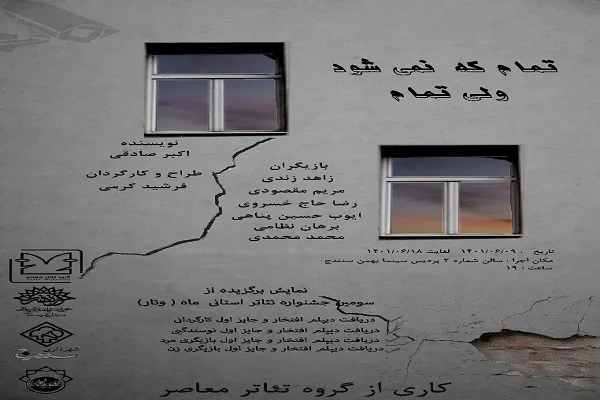 تمام که نمی شود
ولی تمام
نویسنده
اکبر صادقی
طراح و کارگردان
فرشید کرمی
بازیگران
زاهد زندی
مریم مقصودی
رضا حاج خسروی
ایوب حسین پناهی
برهان نظامی
محمد محمدی
تاریخ : ۱۴۰۱/۰۶/۰۹ لغایت ۱۴۰۱/۰۶/۱۸
مکان اجرا : سالن شماره ۲ پردیس سینما بهمن سنندج
ساعت : ۱۹
نمایش برگزیده از
سومین جشنواره تئاتر استانی ماه ( وتار )
دریافت دیپلم افتخار و جایز اول کارگردانی
دریافت دیپلم افتخار و جایز اول نویسندگی
دریافت دیپلم افتخار و جایز اول بازیگری مرد
دریافت دیپلم افتخار و جایز اول بازیگری زن
شهرداری
سنندج
کاری از گروه تئاتر معاصر